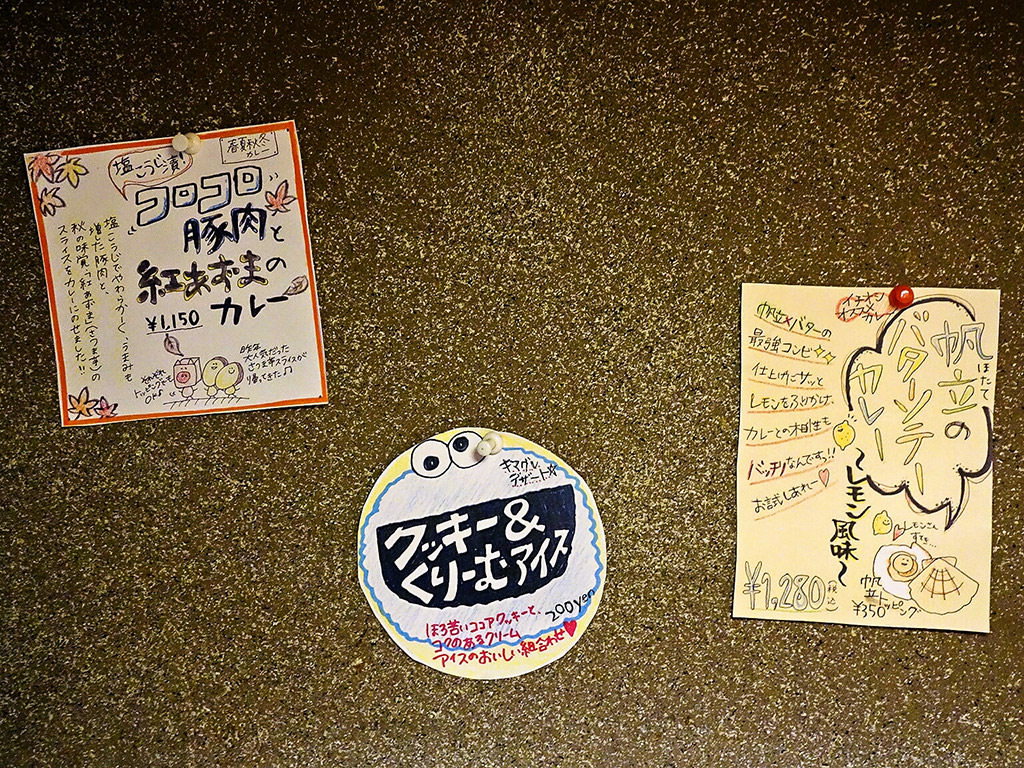 春夏秋冬
カレー
塩こうじ漬!
コロコロ
豚肉と
紅あずまの
カレー
¥1,150
塩こうじでやわらかーく、うまみも
増した豚肉と、
秋の味覚、紅あずま(さつま芋)の
スライスをカレーにのせました!!
昨年
大人気だった
さつま芋スライスが
帰ってきた♪
それぞれ
トッピングでも
OK♪
キマグレ
デザート☆
クッキー&
くりーむアイス
200yen
ほろ苦いココアクッキーと、
コクのあるクリーム
アイスのおいしい組合わせ♥
イチオシ
帆立の
ほたて
バターソテー
カレー
~レモン風味~
帆立×バターの
最強コンビ
仕上げにサッと
レモンをふりかけ、
カレーとの相性も
バッチリなんです!!
お試しあれー♡
レモンさん
すてき…
¥1,280
税込
帆立トッピング
¥350